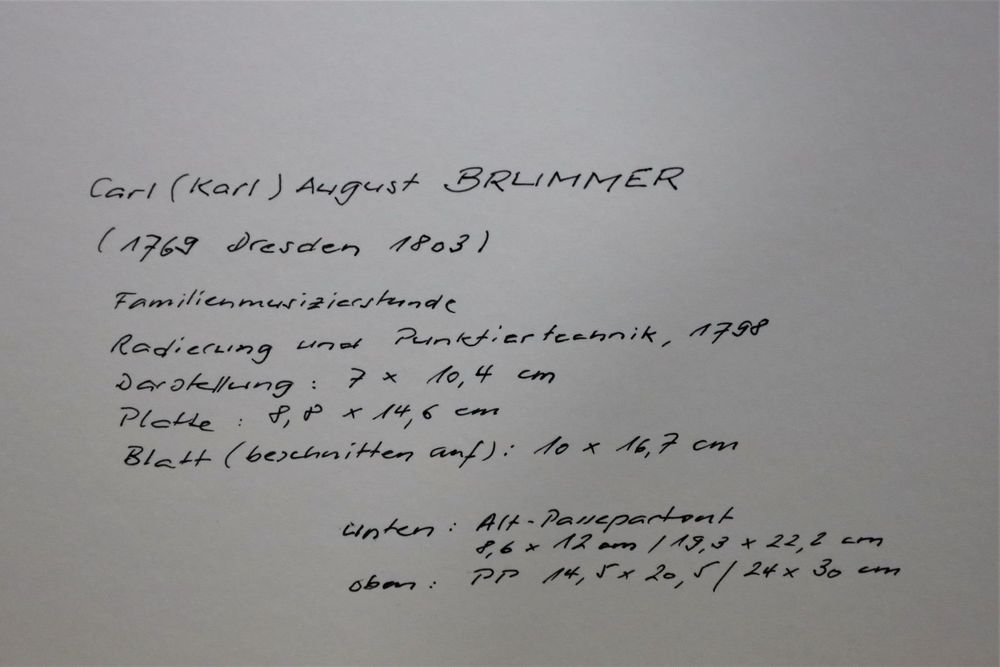 Carl (Karl) August BRUMMER
(1769 Dresden 1803)
Familienmusizierstunde
Radierung und Punktiertechnik, 1798
Darstellung : 7 x 10,4 cm
Platte : 8,8 x 14,6 cm
Blatt (beschnitten auf) : 10 x 16,7 cm
unten : Alt-Passepartout
8,6 x 12 cm / 19,3 x 22,2 cm
oben : PP 14,5 x 20,5 / 24 x 30 cm